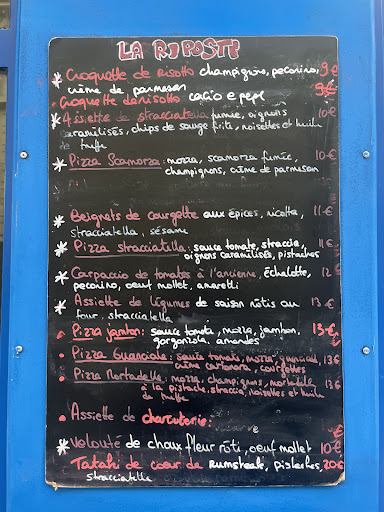 LA RIPOSTE
* Croquette de risotto champignons, pecorino, 9€
crème de parmesan
• Croquette de risotto cacio e pepe 9€
* Assiette de stracciatella fumée, oignons 10€
caramélisés, chips de sauge frits, noisettes et huile
de truffe
* Pizza Scamorza: mozza, scamorza fumée, 10€
champignons, crème de parmesan
* Beignets de courgette aux épices, ricotta, 11€
stracciatella, sésame
* Pizza stracciatella: sauce tomate, straccia, 11€
oignons caramélisés, pistaches
* Carpaccio de tomates à l'ancienne, échalotte, 12€
pecorino, oeuf mollet, amaretti
* Assiette de légumes de saison rôtis au 13€
four, stracciatella
• Pizza jambon: sauce tomate, mozza, jambon, 13€
gorgonzola, amandes
• Pizza Guanciale: sauce tomate, mozza, guanciale, 13€
crème carbonara, courgettes
• Pizza Mortadelle: mozza, champignons, mortadelle 13€
à la pistache, straccia, noisettes et huile
de truffe
• Assiette de charcuterie: €
* Velouté de choux fleur rôti, oeuf mollet 10€
Tataki de coeur de rumsteak, pistaches, 20€
stracciatella